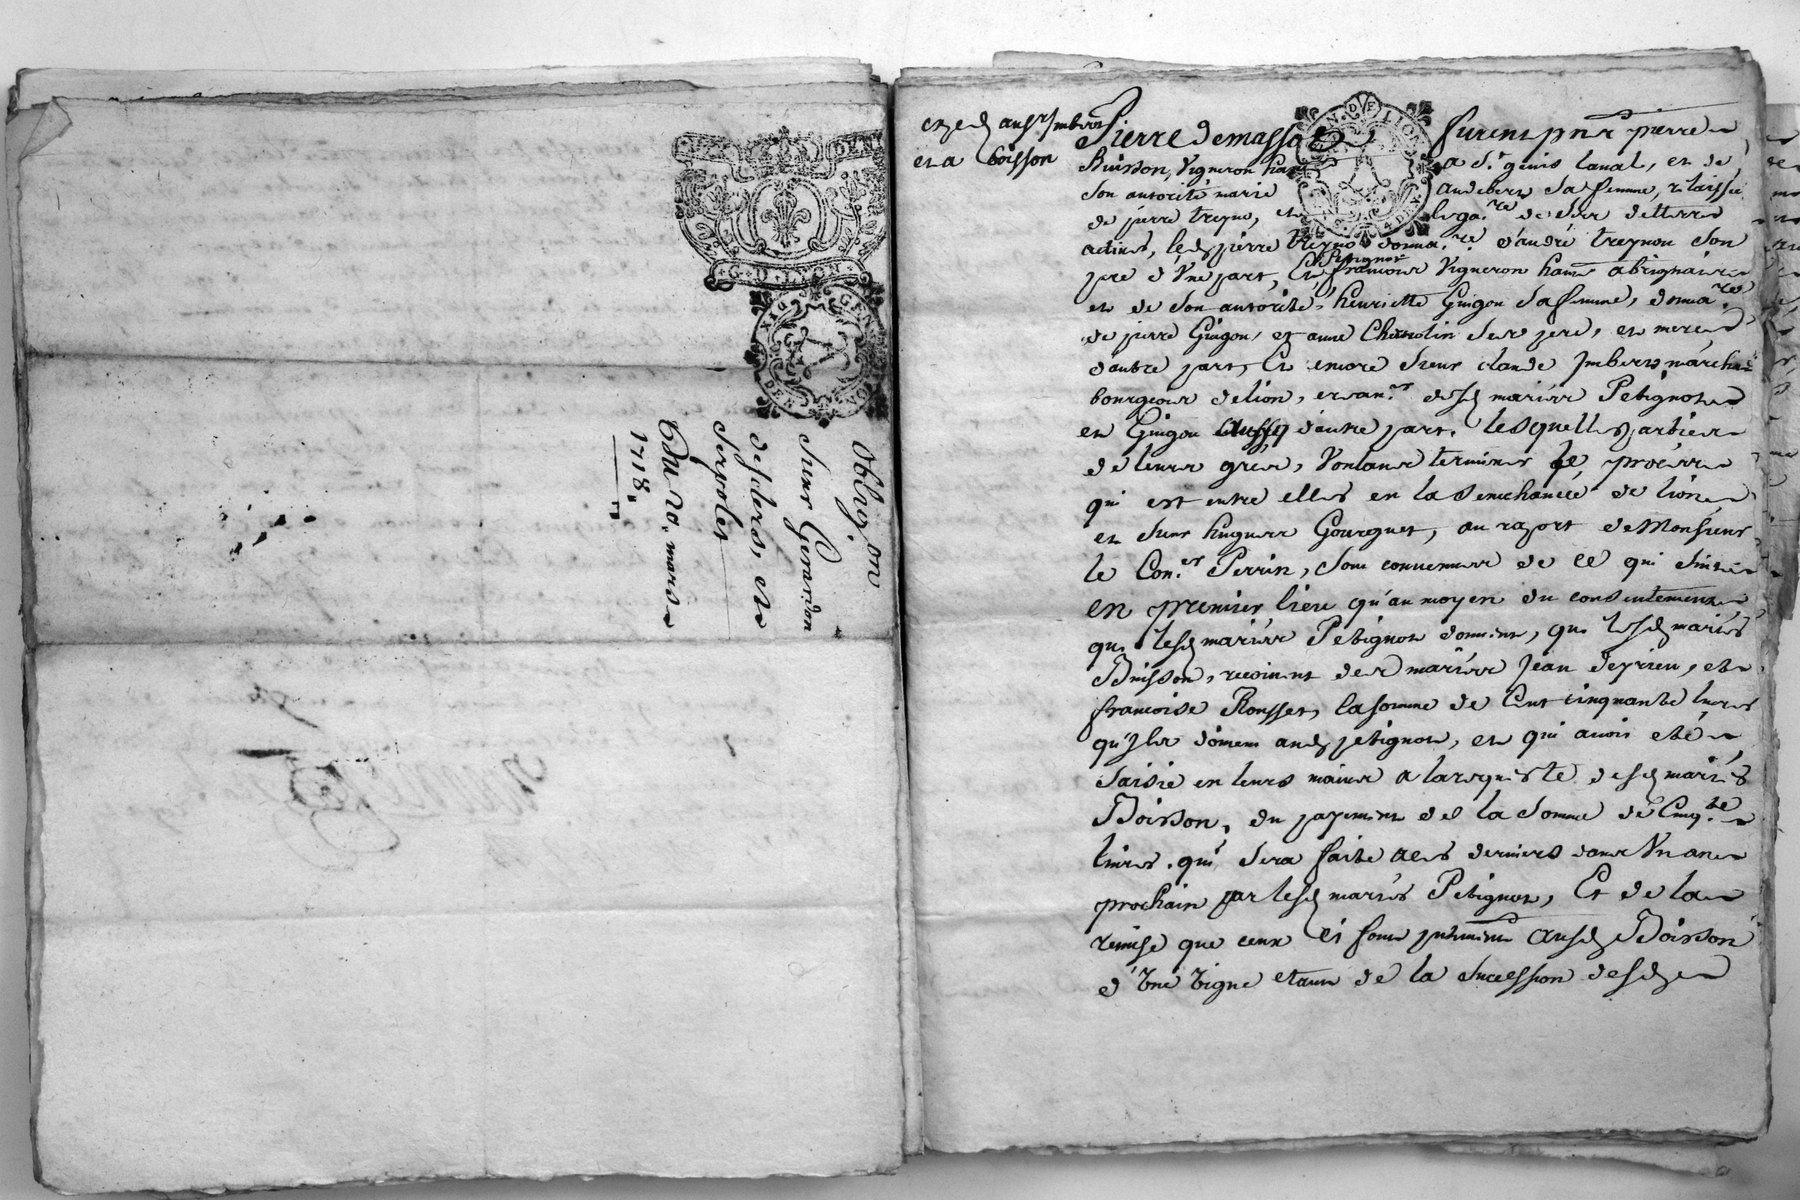 Oblig.on
sieur Girardon
des leres, et
Sergolet
Du 20. mars
1718.
G. D. LYON
et a Boisson
Pierre Demasso furent pnt pierre
Buisson, Vigneron ha a St genis laval, et de
Son autorité marie audebert Sa femme,
de pierre treyno, et de Ses dettes
actives, led pierre treyno donna.re d'andré treynon Son
pere d'Vne part, Et francois Petignot Vigneron ha abrignais
et de Son autorité, henriette Guigou Sa femme, donna.re
de pierre Guigou, et anne Ses pere, et mere
d'autre part, Et encore Sieur claude Imbert marchand
bourgeois de lion, desd mariés Petignot
et Guigou aussy d'autre part. lesquelles parties
de leurs grés, Voulant terminer le procés
qui est entre elles en la Senechaucée de lion
et Sieur hugues Gourguet, au raport de Monsieur
le Con.er Perrin, Sont convenues de ce qui Suit
en premier lieu qu'au moyen du consentement
que lesd mariés Petignot donnent, que lesd mariés
Buisson, recoivent des mariés Jean deyrieu, et
francoise Rousset, la somme de Cent cinquante livres
qu'Ils doivent aud petignot, et qui avoit eté
Saisie en leurs mains a la requeste desd mariés
Boisson, du payement de la Somme de Cinq.te
livres. qui Sera faite aes derniers dans Vn an
prochain par lesd mariés Petignot, Et de la
remise que ceux Ci font pntement ausd Boisson
d'Vne Vigne etant de la Succession desd